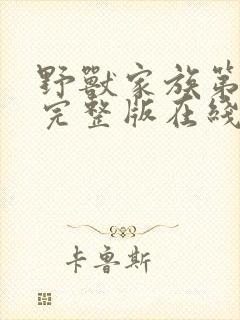 野獸家族第
完整版在綫
卡鲁斯